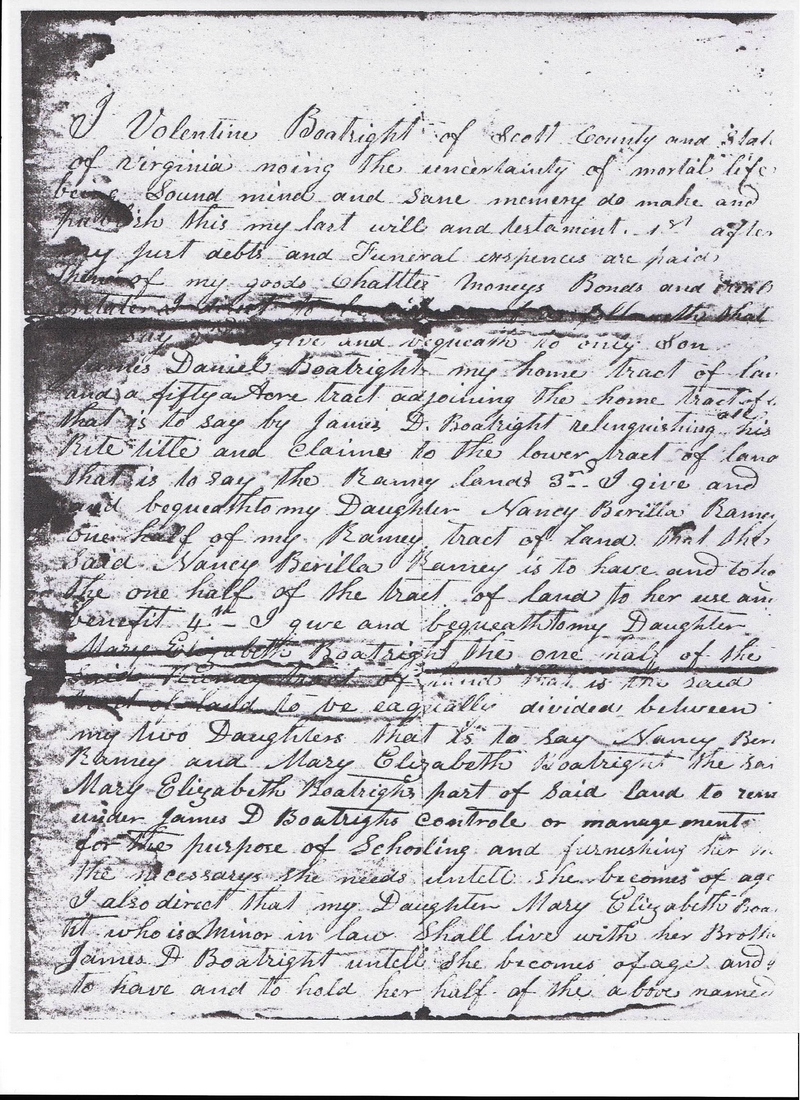 I Volentine Boatright of Scott County and Stat
of virginia noing the uncertainty of mortal life
being Sound mind and sane memery do make and
publish this my last will and testament. 1st after
my just debts and Funeral exspences are paid
them of my goods Chattles Moneys Bonds and
to be that
say give and bequeath to only Son
James Daniel Boatright my home tract of lan
and a fifty a Acre tract adjoining the home tract of
that is to say by James D. Boatright relinquishing all his
Rite title and Claime to the lower tract of land
that is to say the Ramey lands 3rd I give and
and bequeath to my Daughter Nancy Berilla Ramey
one half of my Ramey tract of land that the
Said Nancy Berilla Ramey is to have and to ho
the one half of the tract of land to her use and
benefit 4th I give and bequeath to my Daughter
Mary Elizabeth Boatright the one half of the
Said Ramey tract of land that is the said
tract of land to be eaqually divided between
my two Daughters that is to say Nancy Ber
Ramey and Mary Elizabeth Boatright the sa
Mary Elizabeth Boatrights part of Said land to rem
under James D Boatrights Controle or management
for the purpose of Schooling and furnishing her
the necessarys she needs untell she becomes of age
I also direct that my Daughter Mary Elizabeth Boa
tit who is a Minor in law Shall live with her Broth
James D Boatright untell She becomes of age and
to have and to hold her half of the above named